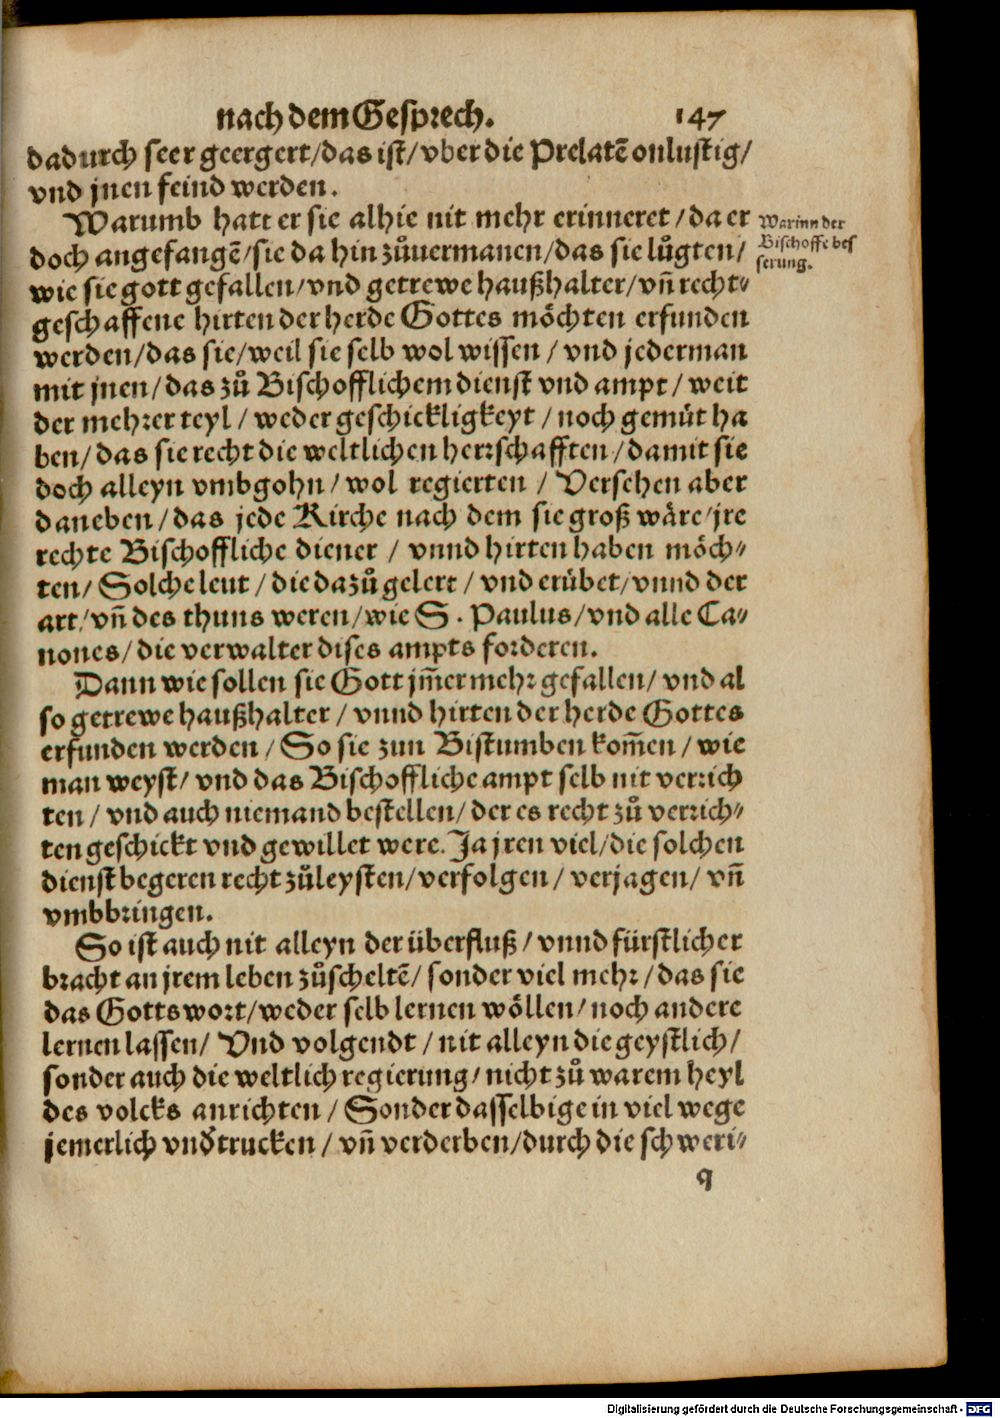 nach dem Gesprech. 147
dadurch seer geergert/das ist/vber die Prelatē onlustig/
vnd jnen feind werden.
Warumb hatt er sie alhie nit mehr erinneret/da er
doch angefangē/sie da hin zůuermanen/das sie lůgten/
wie sie gott gefallen/vnd getrewe haußhalter/vn̄ recht⸗
geschaffene hirten der herde Gottes möchten erfunden
werden/das sie/weil sie selb wol wissen/vnd jederman
mit jnen/das zů Bischofflichem dienst vnd ampt/weit
der mehrer teyl/weder geschickligkeyt/noch gemüt ha
ben/das sie recht die weltlichen herrschafften/damit sie
doch alleyn vmbgohn/wol regierten/Versehen aber
daneben/das jede Kirche nach dem sie groß wäre/jre
rechte Bischoffliche diener/vnnd hirten haben möch⸗
ten/Solche leut/die dazů gelert/vnd erübet/vnnd der
art/vn̄ des thuns weren/wie S. Paulus/vnd alle Ca⸗
nones/die verwalter dises ampts forderen.
Dann wie sollen sie Gott jm̄er mehr gefallen/vnd al
so getrewe haußhalter/vnnd hirten der herde Gottes
erfunden werden/So sie zun Bistumben kom̄en/wie
man weyst/vnd das Bischoffliche ampt selb nit verrich
ten/vnd auch niemand bestellen/der es recht zů verrich⸗
ten geschickt vnd gewillet were. Ja jren viel/die solchen
dienst begeren recht zůleysten/verfolgen/verjagen/vn̄
vmbbringen.
So ist auch nit alleyn der überfluß/vnnd fürstlicher
bracht an jrem leben zůscheltē/sonder viel mehr/das sie
das Gotts wort/weder selb lernen wöllen/noch andere
lernen lassen/Vnd volgendt/nit alleyn die geystlich/
sonder auch die weltlich regierung/nicht zů warem heyl
des volcks anrichten/Sonder dasselbige in viel wege
jemerlich vnd̓trucken/vn̄ verderben/durch die schweri⸗
q
Warinn der
Bischoffe bes
serung.
Digitalisierung gefördert durch die Deutsche Forschungsgemeinschaft - DFG